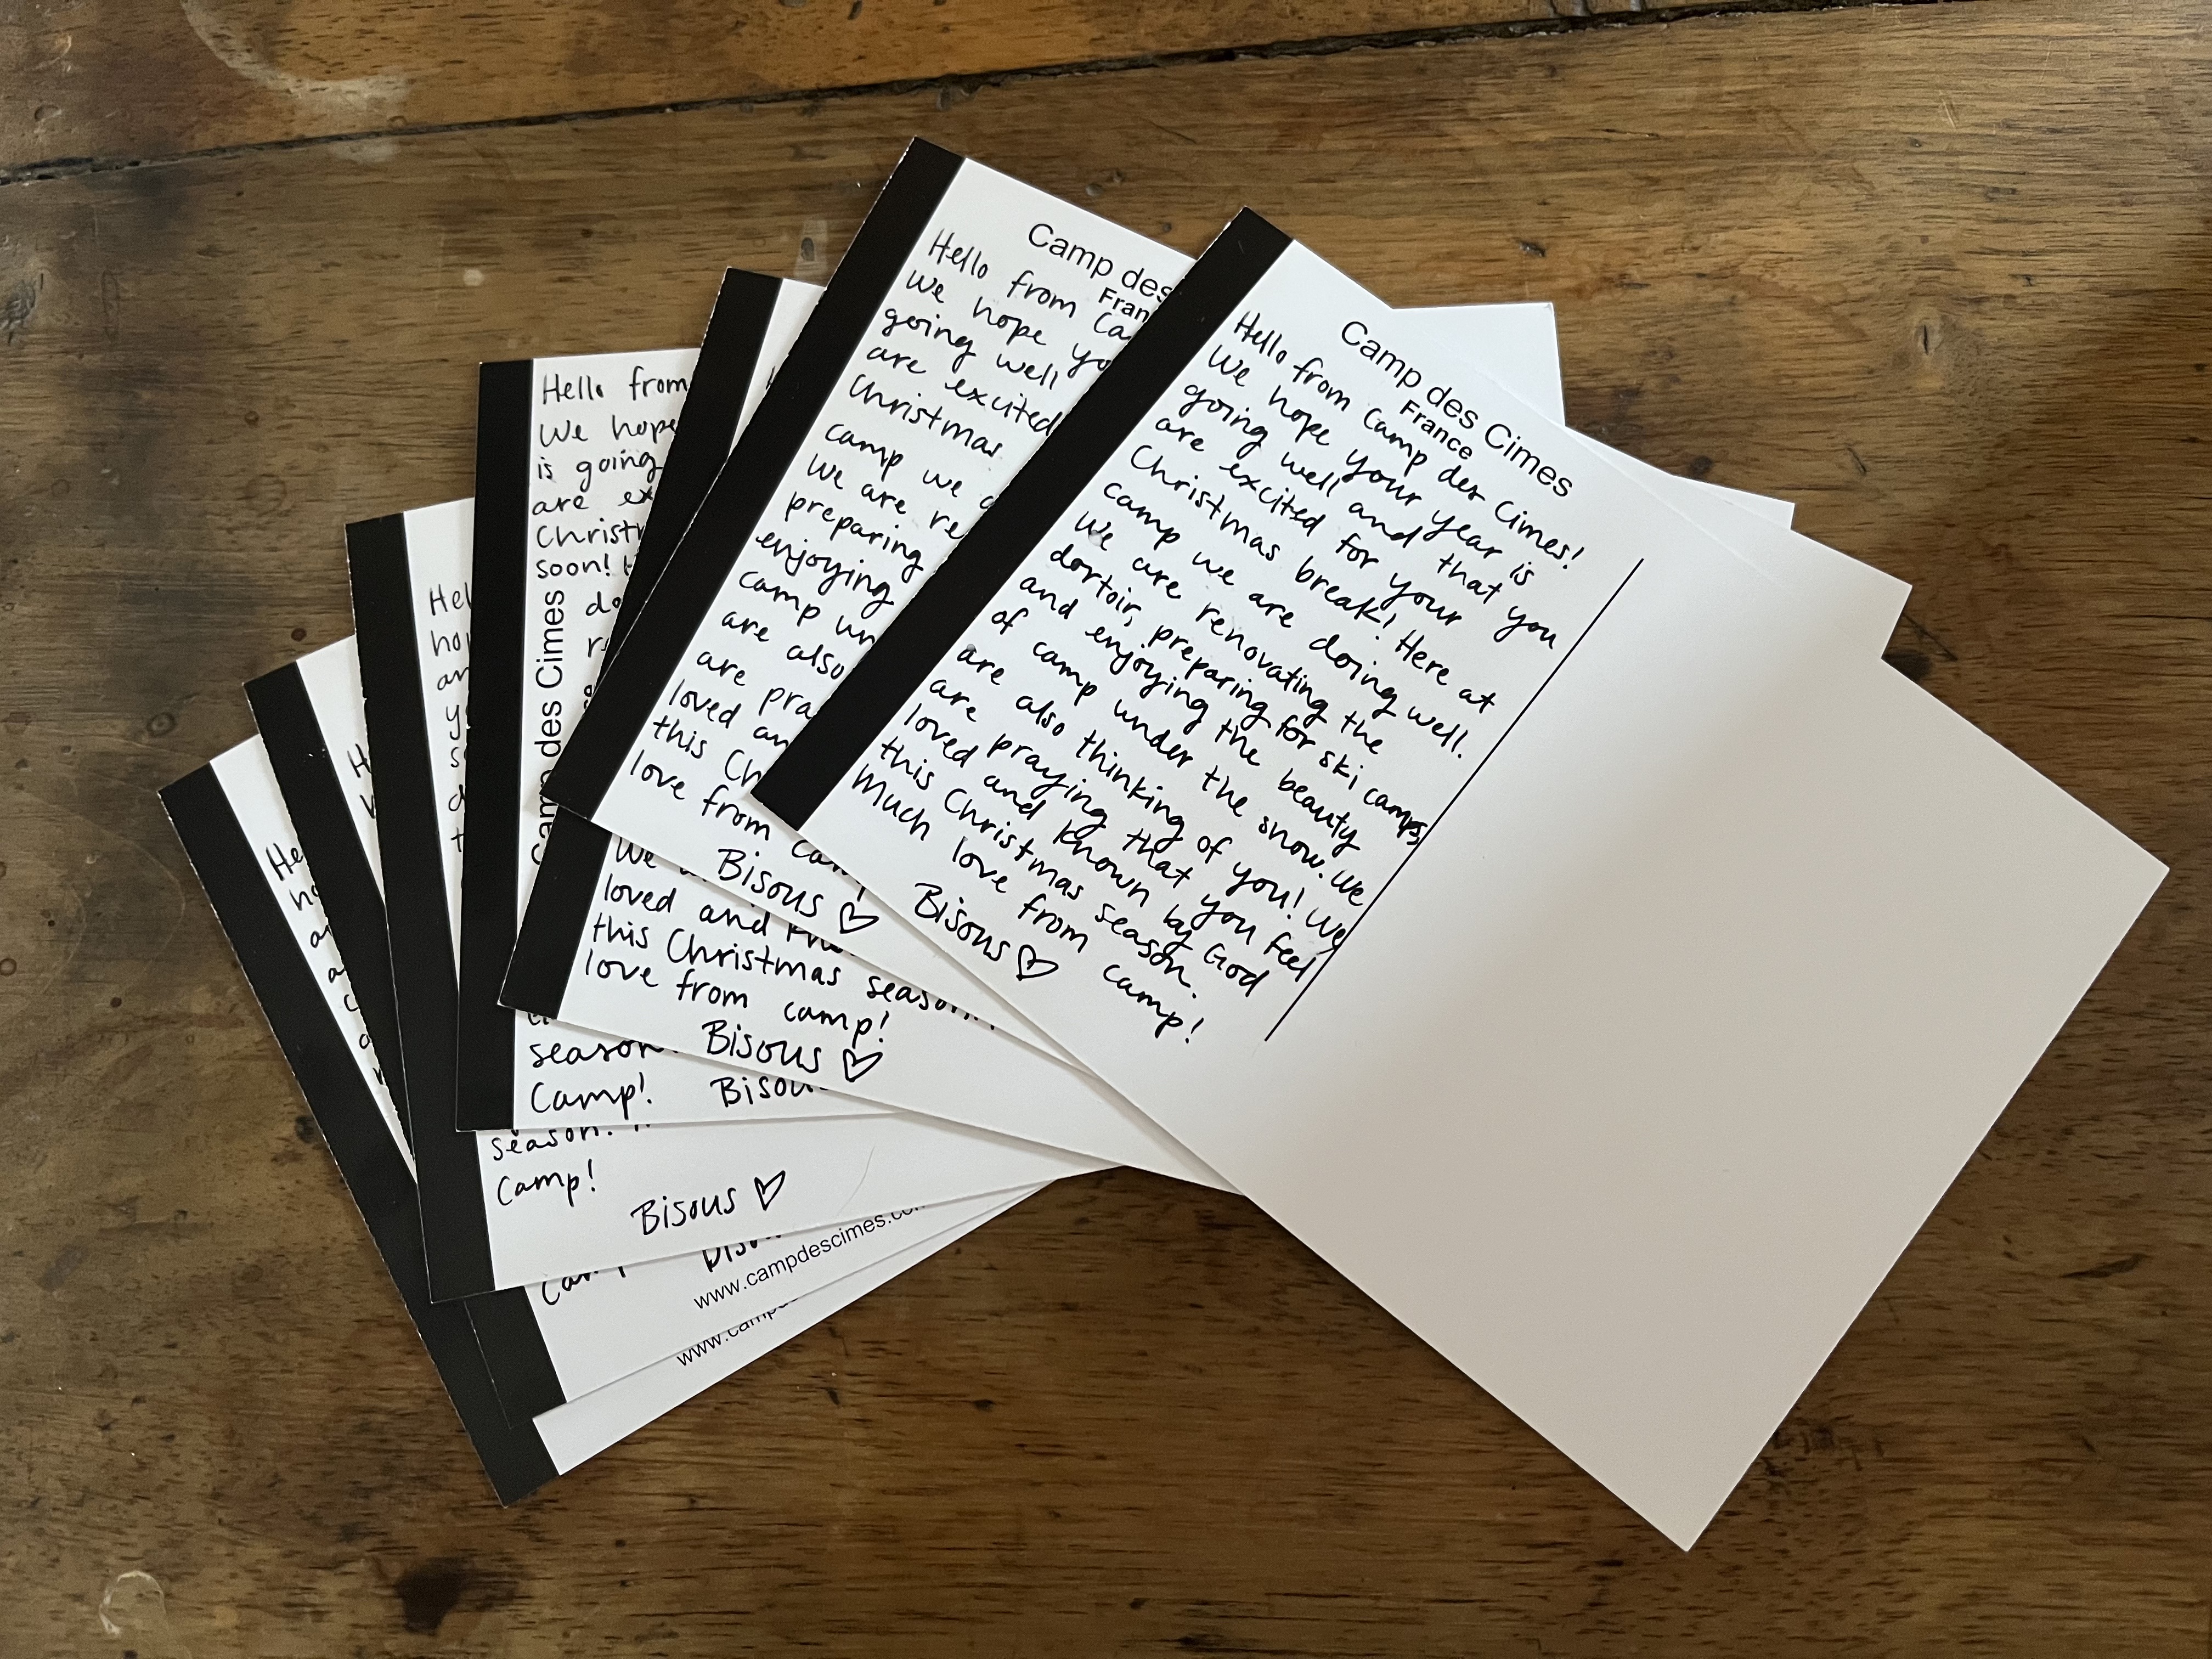 Camp des Cimes
France
Hello from Camp des Cimes!
We hope your year is
going well and that you
are excited for your
Christmas break! Here at
camp we are doing well.
We are renovating the
dortoir, preparing for ski camps,
and enjoying the beauty
of camp under the snow. We
are also thinking of you! We
are praying that you feel
loved and known by God
this Christmas season.
Much love from camp!
Bisous ♡
Camp des
Hello from
We hope
going well
are excited
Christmas
camp we
We are
preparing
enjoying
camp
are also
are
loved
this
love from
Bisous ♡
We
loved and
this Christmas season
love from camp!
Bisous ♡
Hello from
We hope
is going
are
soon!
Camp des Cimes
season
Camp!
season.
Camp!
Bisous ♡
www.campdescimes.
www.